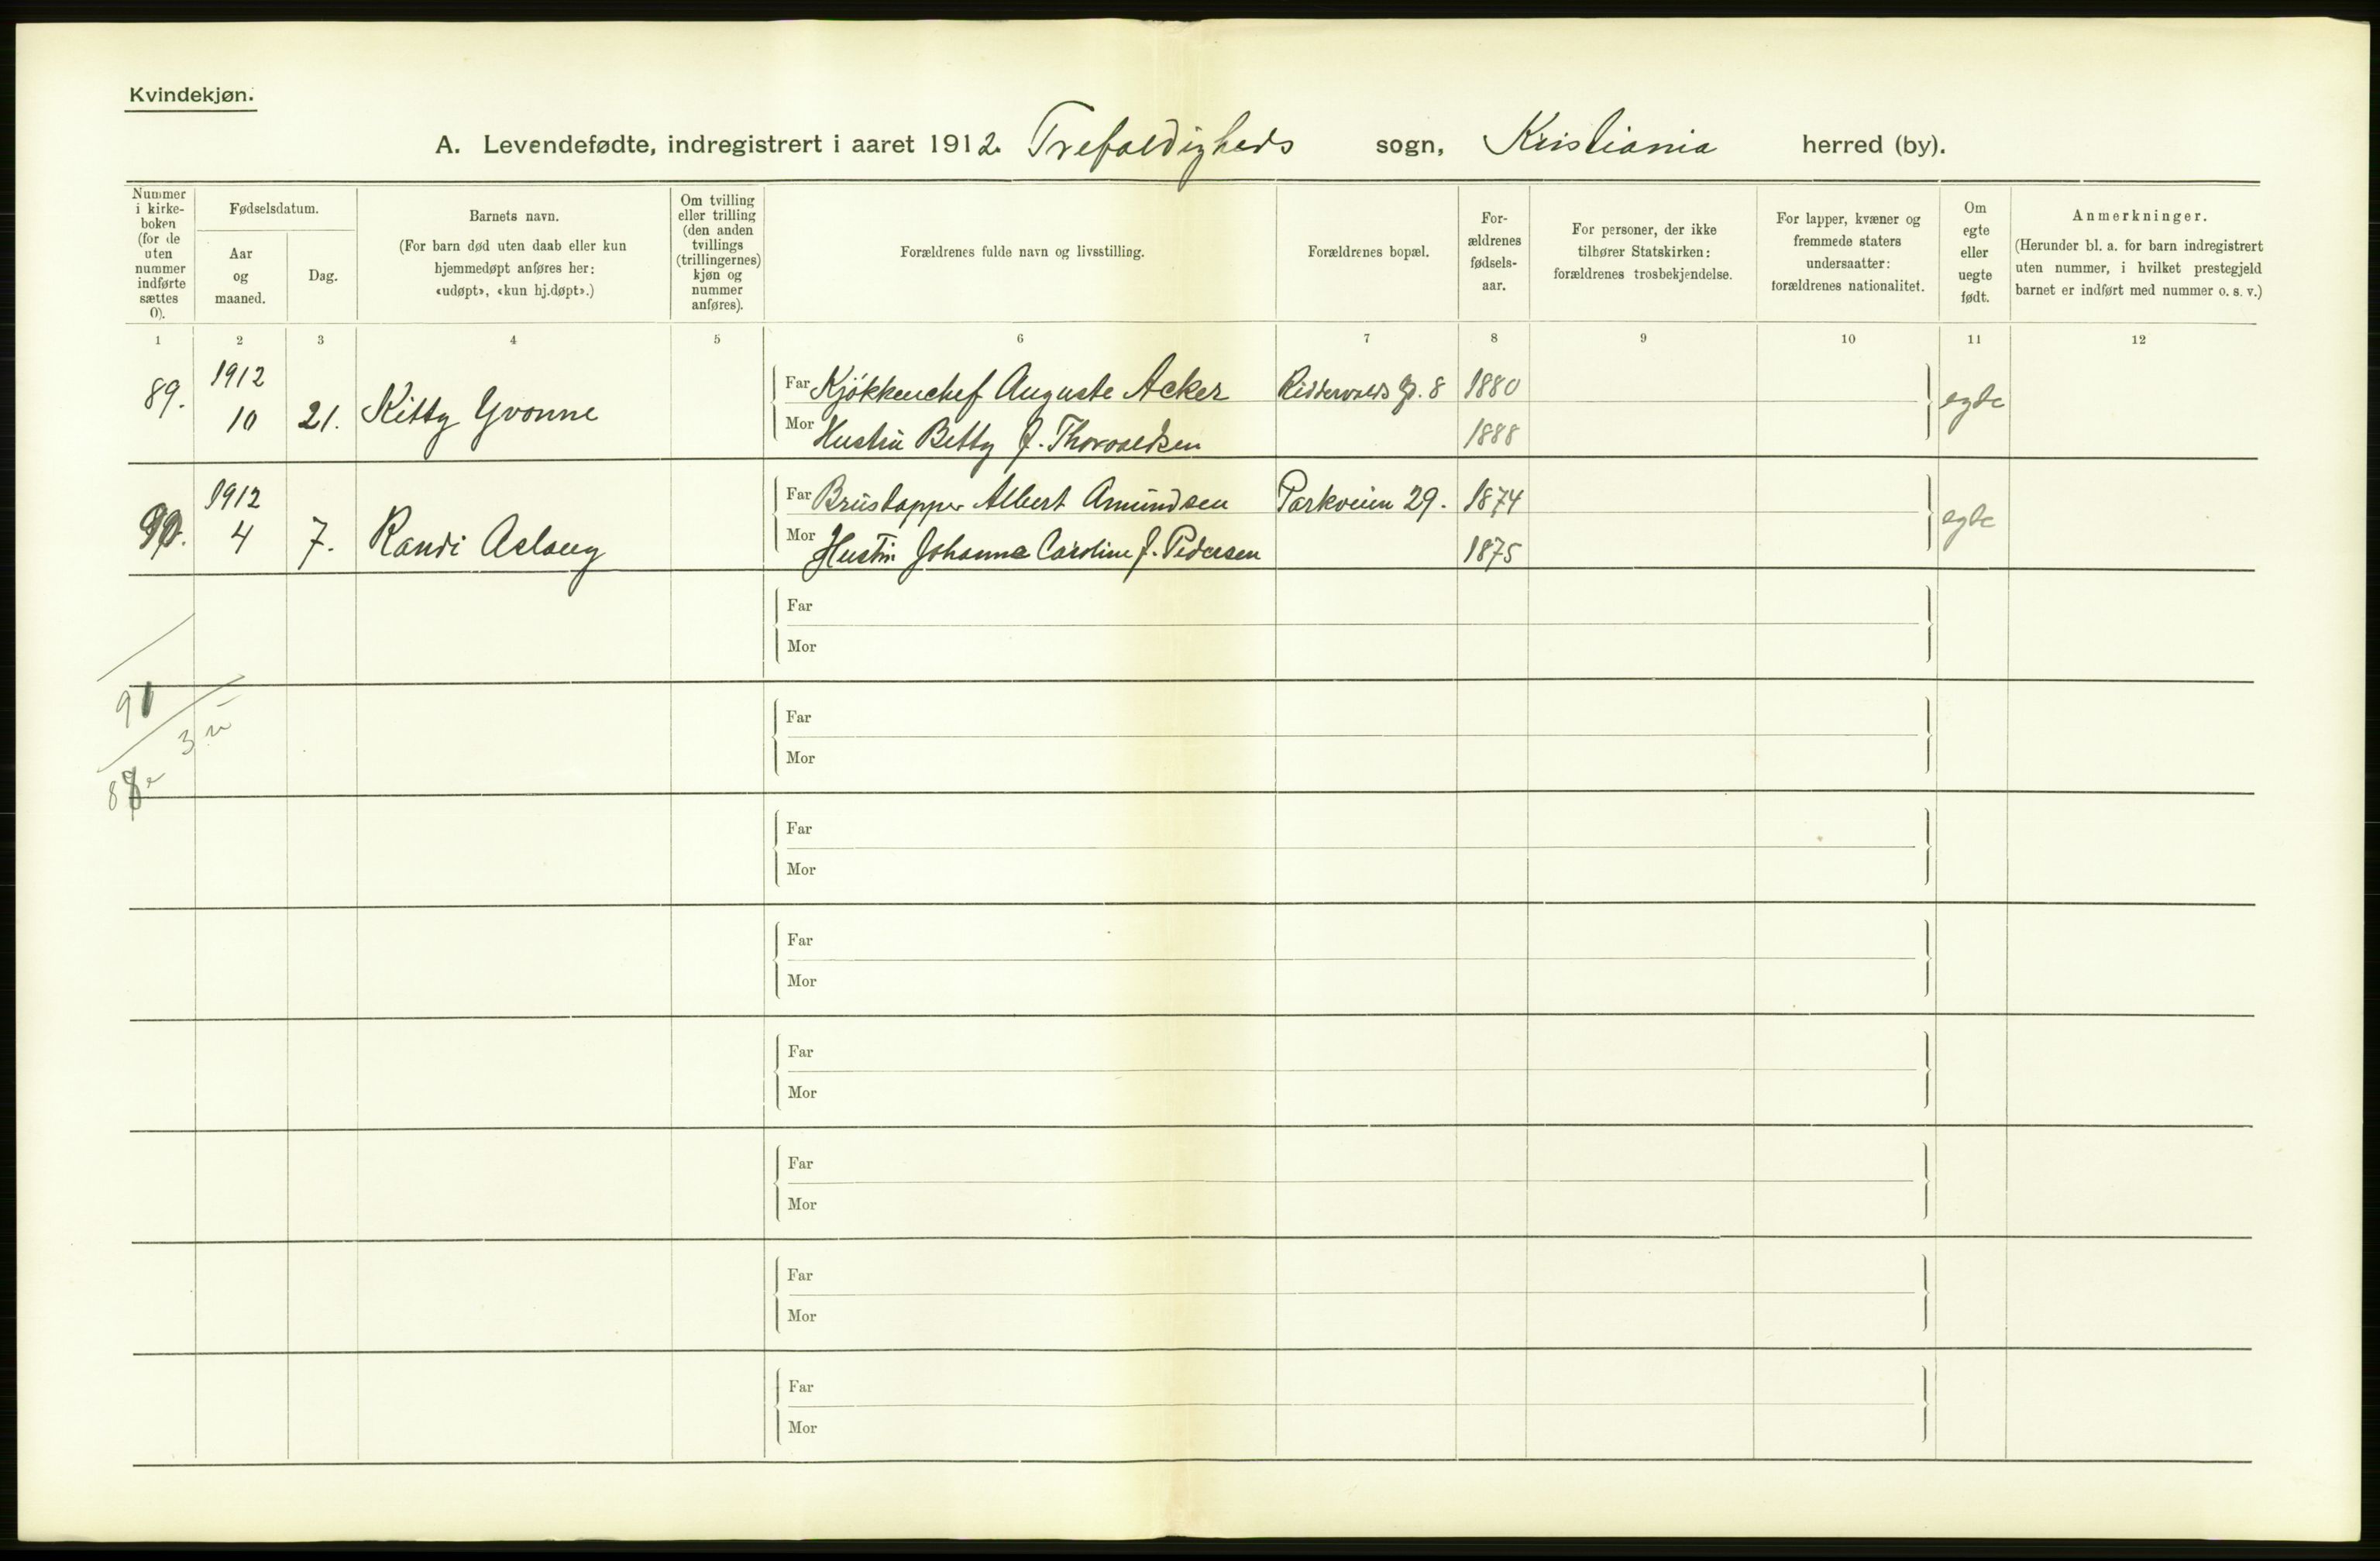 Kvindekjøn.
A. Levendefødte, indregistrert i aaret 1912. Trefoldigheds sogn, Kristiania herred (by).
Nummer i kirke-boken (for de uten nummer indførte sættes 0).
Fødselsdatum.
Aar og maaned.
Dag.
Barnets navn.
(For barn død uten daab eller kun hjemmedøpt anføres her: «udøpt», «kun hj.døpt».)
Om tvilling eller trilling (den anden tvillings (trillingernes) kjøn og nummer anføres).
Forældrenes fulde navn og livsstilling.
Forældrenes bopæl.
For-ældrenes fødsels-aar.
For personer, der ikke tilhører Statskirken: forældrenes trosbekjendelse.
For lapper, kvæner og fremmede staters undersaatter: forældrenes nationalitet.
Om egte eller uegte født.
Anmerkninger.
(Herunder bl. a. for barn indregistrert uten nummer, i hvilket prestegjeld barnet er indført med nummer o. s. v.)
1 2 3 4 5 6 7 8 9 10 11 12
89. 1912 10 21. Kitty Yvonne
Far Kjøkkenchef Auguste Acker Riddervolds g. 8 1880 egte
Mor Hustru Betty f. Thorvaldsen 1888
90. 1912 4 7. Randi Aslaug
Far Brustapper Albert Amundsen Parkveien 29. 1874 egte
Mor Hustru Johanne Caroline f. Pedersen 1875
Far
Mor
91
3 u
Far
Mor
88 e
Far
Mor
Far
Mor
Far
Mor
Far
Mor
Far
Mor
Far
Mor